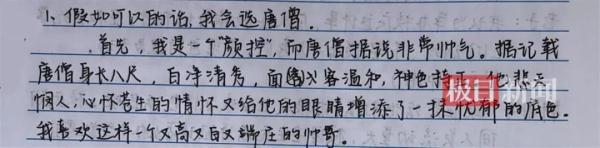 1、假如可以的话,我会选唐僧。
首先,我是一个"颜控",而唐僧据说非常帅气。据记载
唐僧身长八尺,白净清秀,面容温和,神色 他悲天
悯人,心怀苍生的情怀又给他的眼睛增添了一抹忧郁的底色。
我喜欢这样一个又高又白又端庄的帅哥。
极目新闻